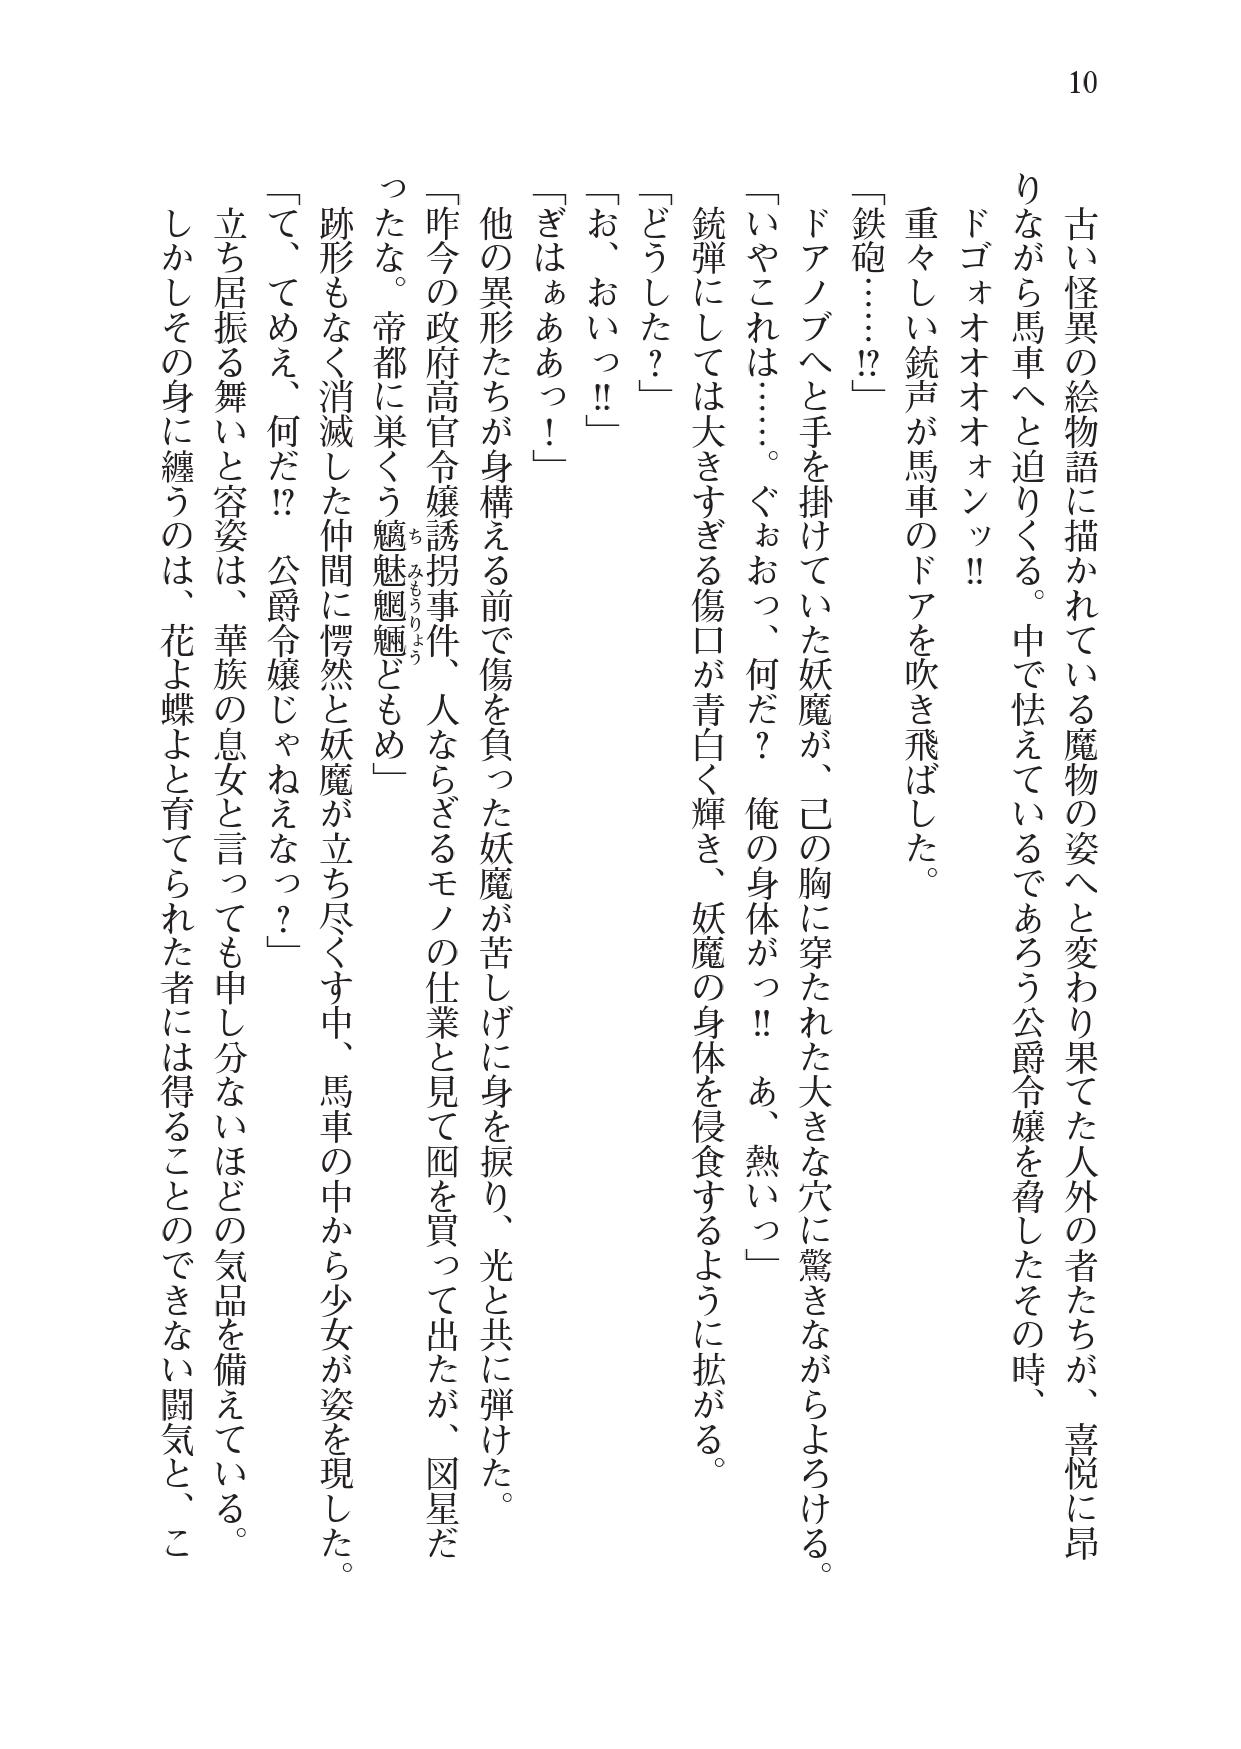 10
　古い怪異の絵物語に描かれている魔物の姿へと変わり果てた人外の者たちが、喜悦に昂
りながら馬車へと迫りくる。中で怯えているであろう公爵令嬢を脅したその時、
　ドゴォオオオオォンッ!!
　重々しい銃声が馬車のドアを吹き飛ばした。
「鉄砲……!?」
　ドアノブへと手を掛けていた妖魔が、己の胸に穿たれた大きな穴に驚きながらよろける。
「いやこれは……。ぐぉおっ、何だ？　俺の身体がっ!!　あ、熱いっ」
　銃弾にしては大きすぎる傷口が青白く輝き、妖魔の身体を侵食するように拡がる。
「どうした？」
「お、おいっ!!」
「ぎはぁああっ！」
　他の異形たちが身構える前で傷を負った妖魔が苦しげに身を捩り、光と共に弾けた。
「昨今の政府高官令嬢誘拐事件、人ならざるモノの仕業と見て囮を買って出たが、図星だ
ったな。帝都に巣くう魑魅魍魎どもめ」
ちみもうりょう
　跡形もなく消滅した仲間に愕然と妖魔が立ち尽くす中、馬車の中から少女が姿を現した。
「て、てめえ、何だ!?　公爵令嬢じゃねえなっ？」
　立ち居振る舞いと容姿は、華族の息女と言っても申し分ないほどの気品を備えている。
　しかしその身に纏うのは、花よ蝶よと育てられた者には得ることのできない闘気と、こ